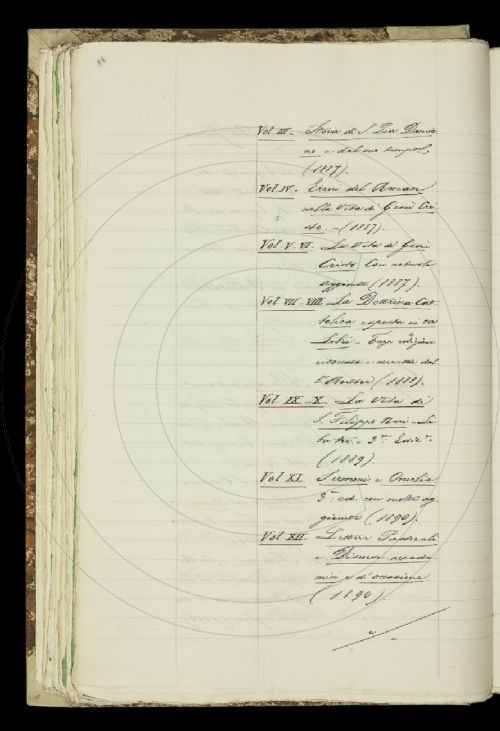 88
Vol. III. - Storia di S. Pier Damia
no e del suo tempo.
(1887).
Vol. IV. - Errori del Renan
nella Vita di Gesù Cri
sto. - (1887).
Vol. V. VI. - La Vita di Gesù
Cristo. Con notevoli
aggiunte (1887).
Vol. VII. VIII. La Dottrina Cat
tolica esposta in tre
Libri - Terza edizione
ritoccata e accresciuta dal
(1888).
Vol. IX - X. - La Vita di
S. Filippo Neri - Li
bri tre. - 3ª Ediz.
(1889).
Vol. XI. Sermoni e Omelie.
3ª ed. con molte ag
giunte (1890).
Vol. XII. - Lettere Pastorali
e Discorsi accade
mici e di occasione.
(1890).